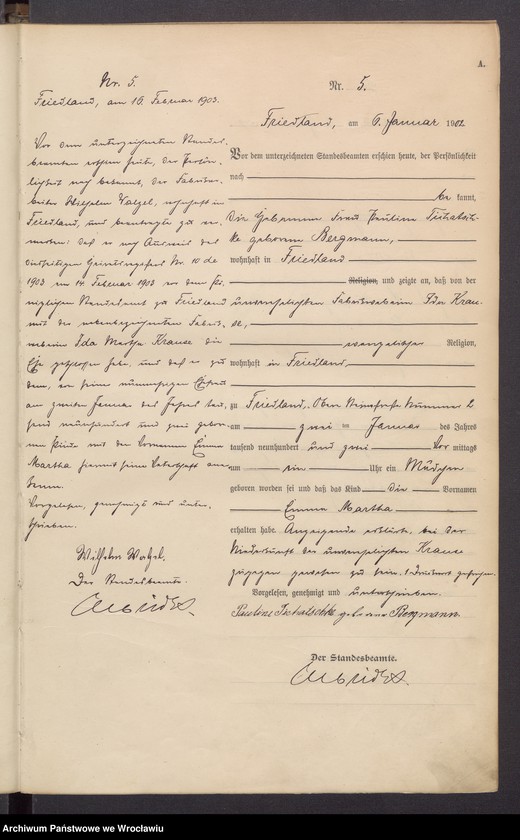 A.
Nr. 5.
Friedland, am 16. Februar 1903.
Vor dem unterzeichneten Standes-
beamten erschien heute, der Persön-
lichkeit nach bekannt, der Fabrikar-
beiter Wilhelm Walzel, wohnhaft in
Friedland, und beantragte zu ver-
merken: daß er nach Ausweis des
diesseitigen Heiratsregisters Nr. 10 de
1903 am 14. Februar 1903 vor dem
Standesamt zu Friedland
mit der nebenbezeichneten Fabrik-
weberin Ida Martha Krause die
Ehe geschlossen habe, und daß er zu
dem, von seiner nunmehrigen Ehefrau
am zweiten Januar des Jahres tau-
send neunhundert und zwei gebore-
nen Kinde mit den Vornamen Emma
Martha hiermit seine Vaterschaft aner-
kenne.
Vorgelesen, genehmigt und unter-
schrieben.
Wilhelm Walzel.
Der Standesbeamte.
Nr. 5.
Friedland, am 6. Januar 1902
Vor dem unterzeichneten Standesbeamten erschien heute, der Persönlichkeit
nach
be kannt,
die Hebamme Frau Pauline Tschatsch-
ke geborene Bergmann,
wohnhaft in Friedland
Religion, und zeigte an, daß von der
unverehelichten Fabrikweberin Ida Krau-
se,
evangelischer Religion,
wohnhaft in Friedland,
zu Friedland, Nummer 2
am zwei ten Januar des Jahres
tausend neunhundert und zwei Vor mittags
um ein Uhr ein Mädchen
geboren worden sei und daß das Kind die Vornamen
Emma Martha
erhalten habe. Anzeigende erklärte, bei der
Niederkunft der unverehelichten Krause
zugegen gewesen zu sein. 1 Druckwort gestrichen.
Vorgelesen, genehmigt und unterschrieben.
Pauline Tschatschke geborene Bergmann
Der Standesbeamte.
Archiwum Państwowe we Wrocławiu